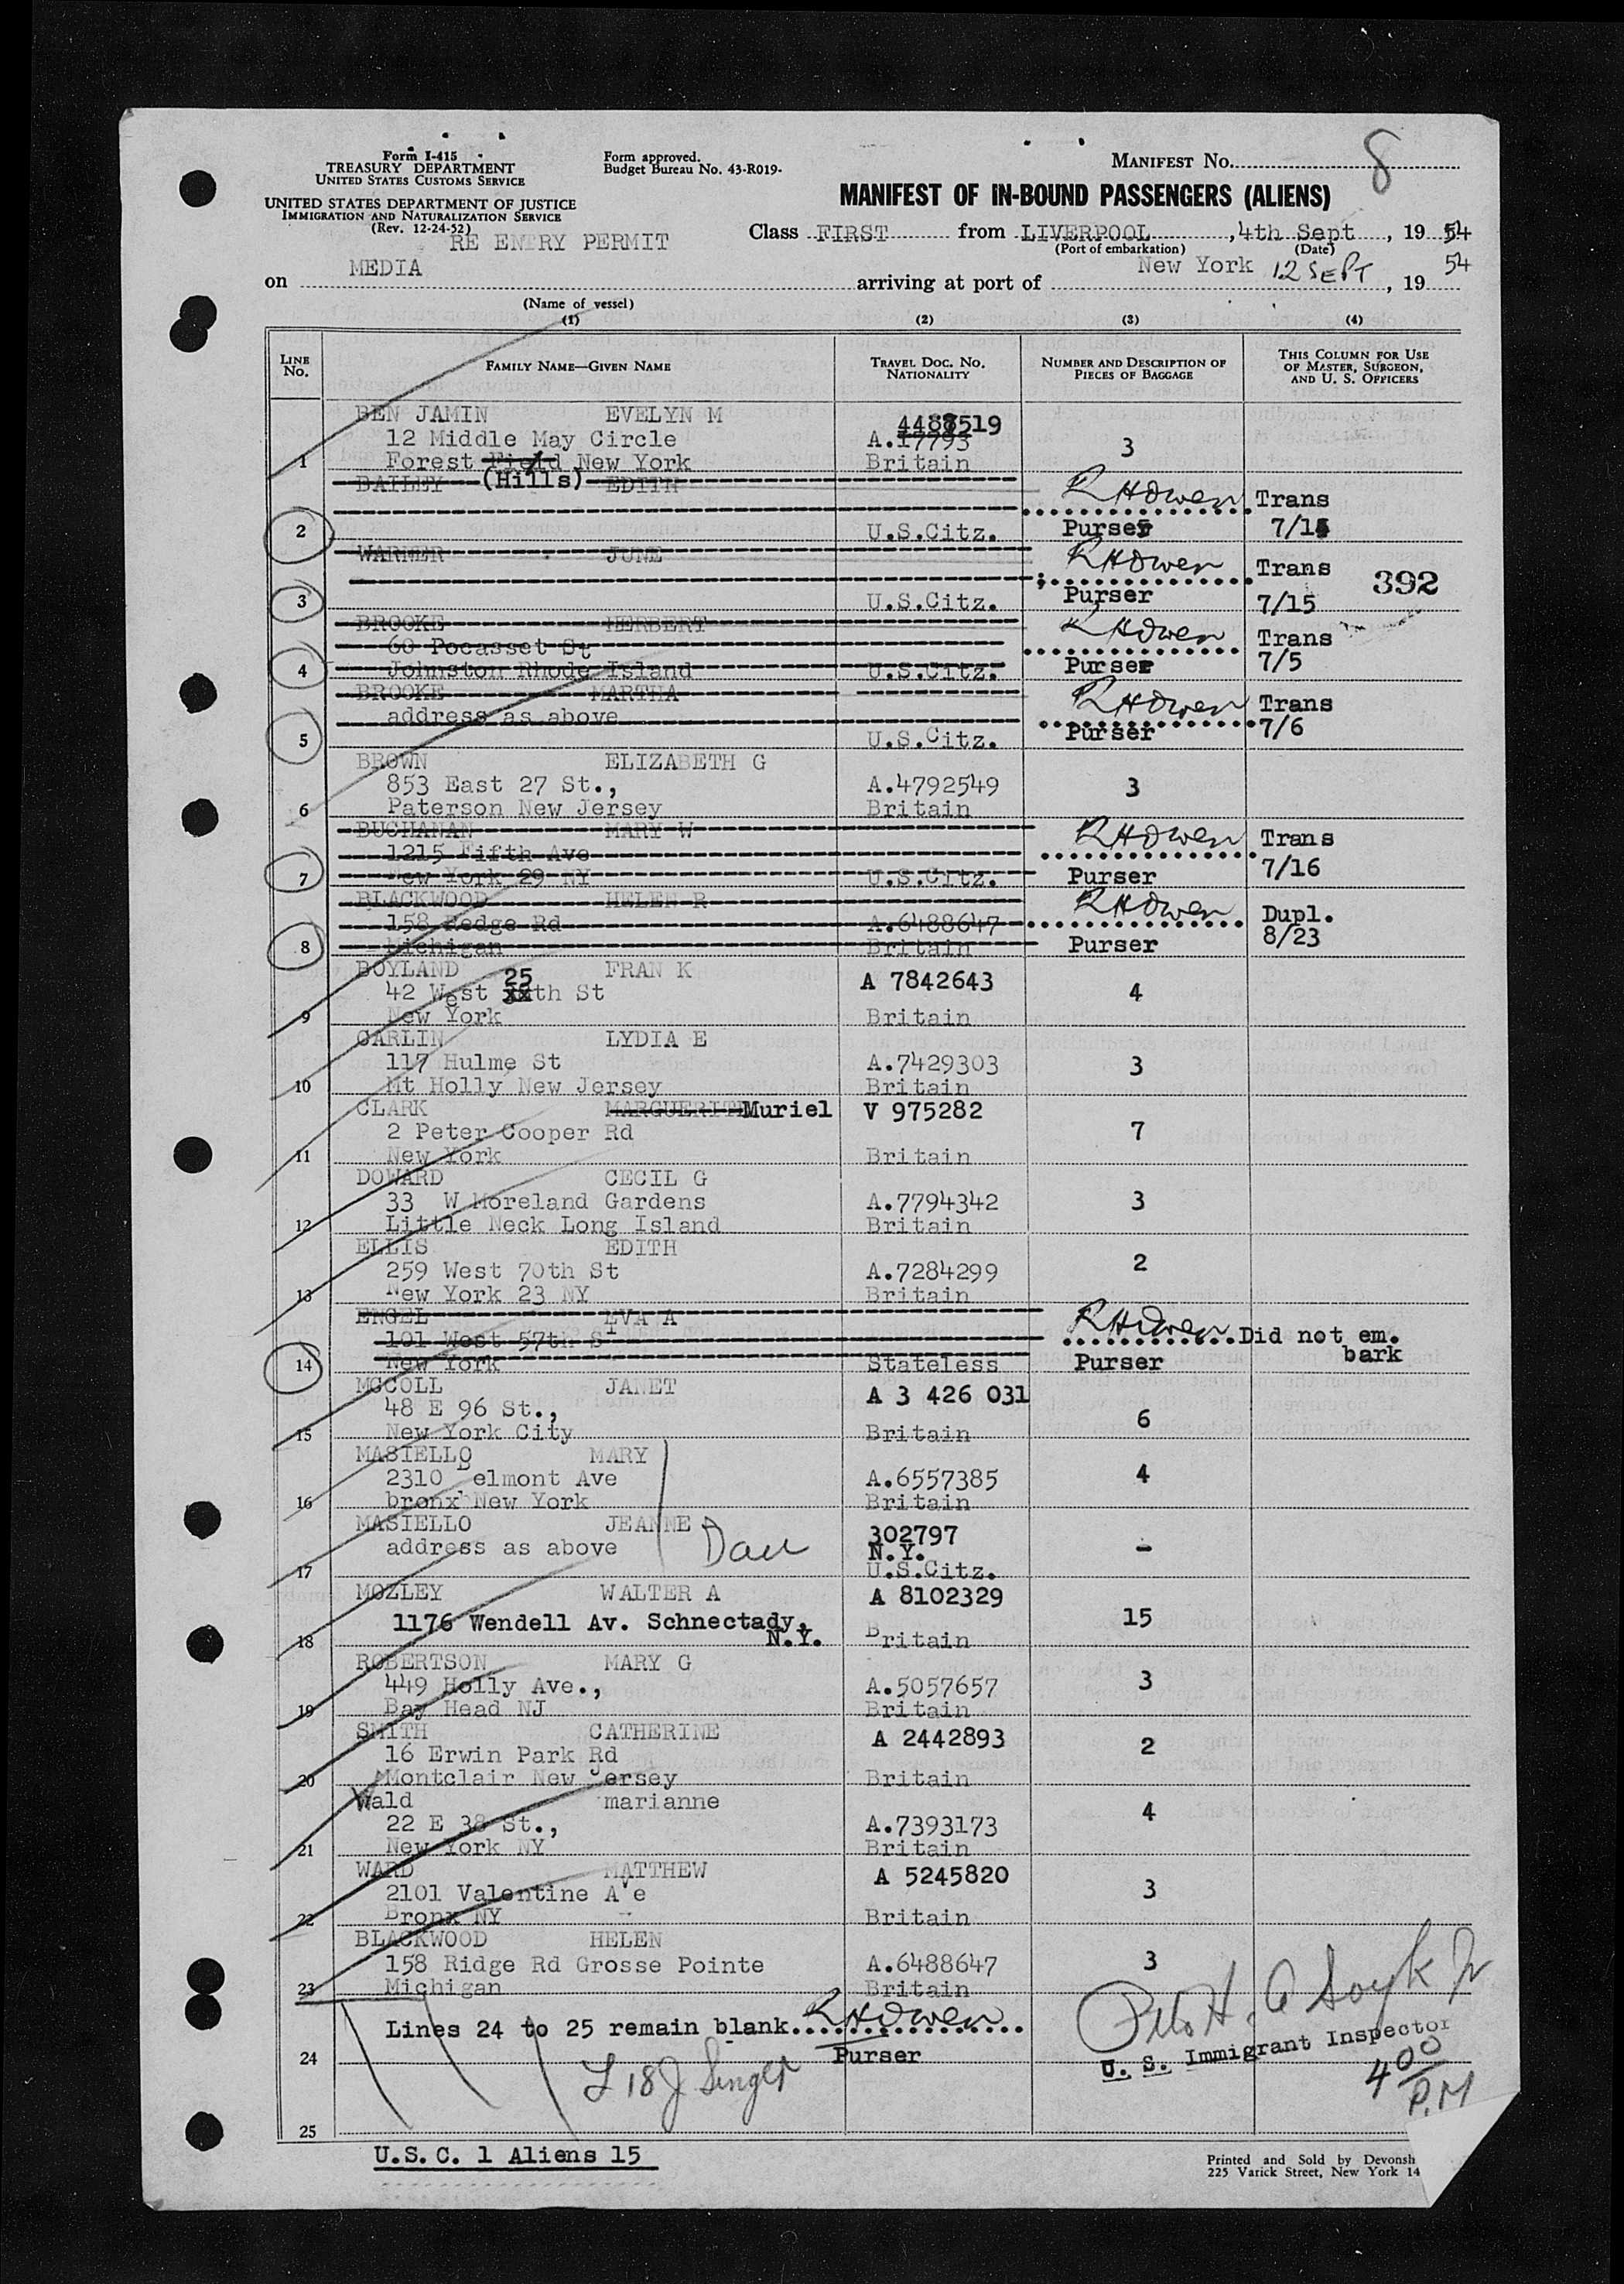 Form I-415
TREASURY DEPARTMENT
UNITED STATES CUSTOMS SERVICE
UNITED STATES DEPARTMENT OF JUSTICE
IMMIGRATION AND NATURALIZATION SERVICE
(Rev. 12-24-52)
Form approved.
Budget Bureau No. 43-R019-
MANIFEST No. 8
MANIFEST OF IN-BOUND PASSENGERS (ALIENS)
RE ENTRY PERMIT
Class FIRST from LIVERPOOL, 4th Sept, 1954
(Port of embarkation) (Date)
on MEDIA arriving at port of New York 12 SEPT, 19 54
(Name of vessel)
(1) (2) (3) (4)
LINE No. FAMILY NAME—GIVEN NAME TRAVEL DOC. No. NATIONALITY NUMBER AND DESCRIPTION OF PIECES OF BAGGAGE THIS COLUMN FOR USE OF MASTER, SURGEON, AND U. S. OFFICERS
BEN JAMIN EVELYN M 4487519
12 Middle May Circle A.17793 3
1 Forest Field New York Britain
(Hills)
BAILEY EDITH RHOwen Trans
2 U.S.Citz. Purser 7/14
WARNER JUNE RHOwen Trans 392
3 U.S.Citz. Purser 7/15
BROOKE HERBERT RHOwen Trans
60 Pocasset St
4 Johnston Rhode Island U.S.Citz. Purser 7/5
BROOKE MARTHA RHOwen Trans
address as above
5 U.S.Citz. Purser 7/6
BROWN ELIZABETH G
853 East 27 St., A.4792549 3
6 Paterson New Jersey Britain
BUCHANAN MARY W RHOwen Trans
1215 Fifth Ave
7 New York 29 NY U.S.Citz. Purser 7/16
BLACKWOOD HELEN R RHOwen Dupl.
158 Redge Rd A.6488647 8/23
8 Michigan Britain Purser
BOYLAND FRAN K A 7842643
42 West 25 th St 4
9 New York Britain
CARLIN LYDIA E
117 Hulme St A.7429303 3
10 Mt Holly New Jersey Britain
CLARK MARGUERITE Muriel V 975282
2 Peter Cooper Rd 7
11 New York Britain
DOWARD CECIL G
33 W Moreland Gardens A.7794342 3
12 Little Neck Long Island Britain
ELLIS EDITH
259 West 70th St A.7284299 2
13 New York 23 NY Britain
ENGEL EVA A RHOwen Did not em.
101 West 57th St bark
14 New York Stateless Purser
MCCOLL JANET A 3 426 031
48 E 96 St., 6
15 New York City Britain
MASIELLO MARY
2310 Belmont Ave A.6557385 4
16 bronx New York Britain
MASIELLO JEANNE 302797
address as above Dau N.Y. -
17 U.S.Citz.
MOZLEY WALTER A A 8102329
1176 Wendell Av. Schnectady, 15
18 N.Y. Britain
ROBERTSON MARY G
449 Holly Ave., A.5057657 3
19 Bay Head NJ Britain
SMITH CATHERINE A 2442893
16 Erwin Park Rd 2
20 Montclair New Jersey Britain
Wald marianne
22 E 38 St., A.7393173 4
21 New York NY Britain
WARD MATTHEW A 5245820
2101 Valentine Ave 3
22 Bronx NY Britain
BLACKWOOD HELEN
158 Ridge Rd Grosse Pointe A.6488647 3
23 Michigan Britain
Lines 24 to 25 remain blank. RHOwen
Purser
U. S. Immigrant Inspector
24
L 18 J Singer
4 00 P.M
25
U.S.C. 1 Aliens 15
Printed and Sold by Devonsh
225 Varick Street, New York 14